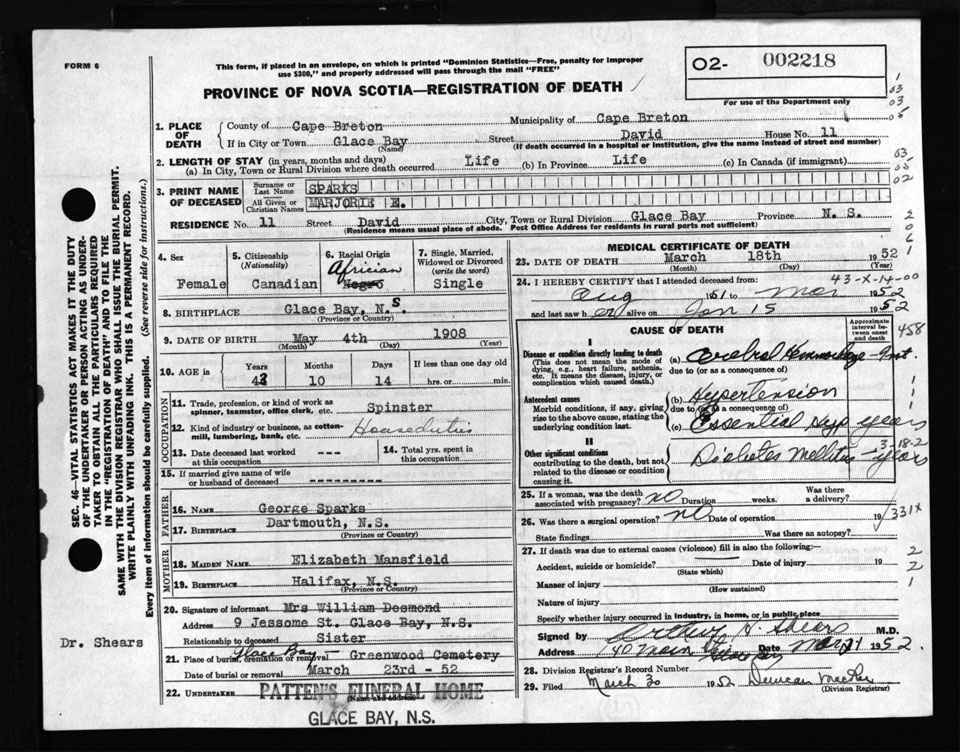 FORM 6
This form, if placed in an envelope, on which is printed "Dominion Statistics—Free, penalty for improper
use $300," and properly addressed will pass through the mail "FREE"
02- 002218
For use of the Department only
PROVINCE OF NOVA SCOTIA—REGISTRATION OF DEATH
1. PLACE OF DEATH
County of Cape Breton Municipality of Cape Breton
If in City or Town Glace Bay Street David House No. 11
(Name) (If death occurred in a hospital or institution, give the name instead of street and number)
2. LENGTH OF STAY (in years, months and days)
(a) In City, Town or Rural Division where death occurred Life (b) In Province Life (c) In Canada (if immigrant)
3. PRINT NAME OF DECEASED
Surname or Last Name SPARKS
All Given or Christian Names MARJORIE E.
RESIDENCE No. 11 Street David City, Town or Rural Division Glace Bay Province N. S.
(Residence means usual place of abode. Post Office Address for residents in rural parts not sufficient)
4. Sex
Female
5. Citizenship
(Nationality)
Canadian
6. Racial Origin
African
Negro
7. Single, Married,
Widowed or Divorced
(write the word)
Single
8. BIRTHPLACE Glace Bay, N. S
(Province or Country)
9. DATE OF BIRTH May 4th 1908
(Month) (Day) (Year)
10. AGE in Years Months Days If less than one day old
43 10 14 hrs. or min.
OCCUPATION
11. Trade, profession, or kind of work as
spinner, teamster, office clerk, etc. Spinster
12. Kind of industry or business, as cotton-
mill, lumbering, bank, etc. Houseduties
13. Date deceased last worked
at this occupation ---
14. Total yrs. spent in
this occupation
15. If married give name of wife
or husband of deceased ----------
FATHER
16. Name George Sparks
17. BIRTHPLACE Dartmouth, N.S.
(Province or Country)
MOTHER
18. MAIDEN NAME Elizabeth Mansfield
19. BIRTHPLACE Halifax, N.S.
(Province or Country)
20. Signature of informant Mrs William Desmond
Address 9 Jessome St. Glace Bay, N.S.
Relationship to deceased Sister
21. Place of burial, cremation or removal Glace Bay — Greenwood Cemetery
Date of burial or removal March 23rd - 52
22. UNDERTAKER PATTEN'S FUNERAL HOME
(Name and address)
GLACE BAY, N.S.
MEDICAL CERTIFICATE OF DEATH
23. DATE OF DEATH March 18th 1952
(Month) (Day) (Year)
43-X-14-00
24. I HEREBY CERTIFY that I attended deceased from:
Aug 1951 to Mar 1952
and last saw her alive on Jan 15 1952
CAUSE OF DEATH
Approximate interval between onset and death
458
I
Disease or condition directly leading to death
(This does not mean the mode of
dying, e.g., heart failure, asthenia,
etc. It means the disease, injury, or
complication which caused death.)
(a) Cerebral Hemmorhage
due to (or as a consequence of)
Antecedent causes
Morbid conditions, if any, giving
rise to the above cause, stating the
underlying condition last.
(b) Hypertension
due to (or as a consequence of)
(c) Essential Hyp years
II
Other significant conditions
contributing to the death, but not
related to the disease or condition
causing it.
3-18-2
Diabetes Mellitus - years
25. If a woman, was the death
associated with pregnancy? no Duration weeks. Was there
a delivery?
26. Was there a surgical operation? no Date of operation 19
331X
State findings Was there an autopsy?
27. If death was due to external causes (violence) fill in also the following:—
Accident, suicide or homicide? Date of injury 19
(State which)
Manner of injury
(How sustained)
Nature of injury
Specify whether injury occurred in industry, in home, or in public place
Signed by Arthur Shears M.D.
Address 40 Main St Glace Bay Date Mar 21 1952
28. Division Registrar's Record Number
29. Filed March 30 1952 Duncan
(Division Registrar)
SEC. 46—VITAL STATISTICS ACT MAKES IT THE DUTY
OF THE UNDERTAKER OR PERSON ACTING AS UNDER-
TAKER TO OBTAIN ALL THE PARTICULARS REQUIRED
IN THE "REGISTRATION OF DEATH" AND TO FILE THE
SAME WITH THE DIVISION REGISTRAR WHO SHALL ISSUE THE BURIAL PERMIT.
WRITE PLAINLY WITH UNFADING INK. THIS IS A PERMANENT RECORD.
Every item of information should be carefully supplied. (See reverse side for instructions.)
Dr. Shears